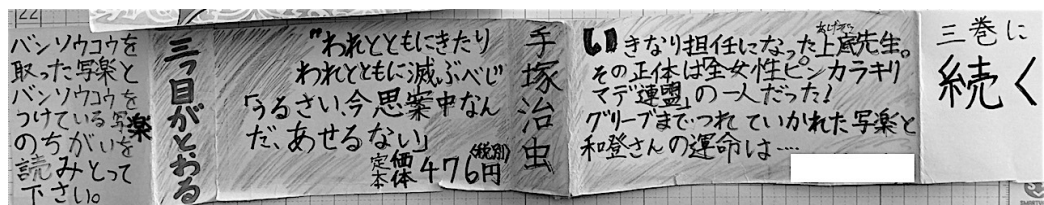 22
バンソウコウを
取った写楽と
バンソウコウを
つけている写楽
のちがいを
読みとって
下さい。
三つ目がとおる
"われとともにきたり
われとともに滅ぶべし"
「うるさい、今思案中なん
だ、あせるない」
定価 (税別)
本体 476円
手塚治虫
いきなり担任になった上底先生。
あげぞこ
その正体は「全女性ピンカラキリ
マデ連盟」の一人だった!
グリーブまでつれていかれた写楽と
和登さんの運命は…
三巻に
続く